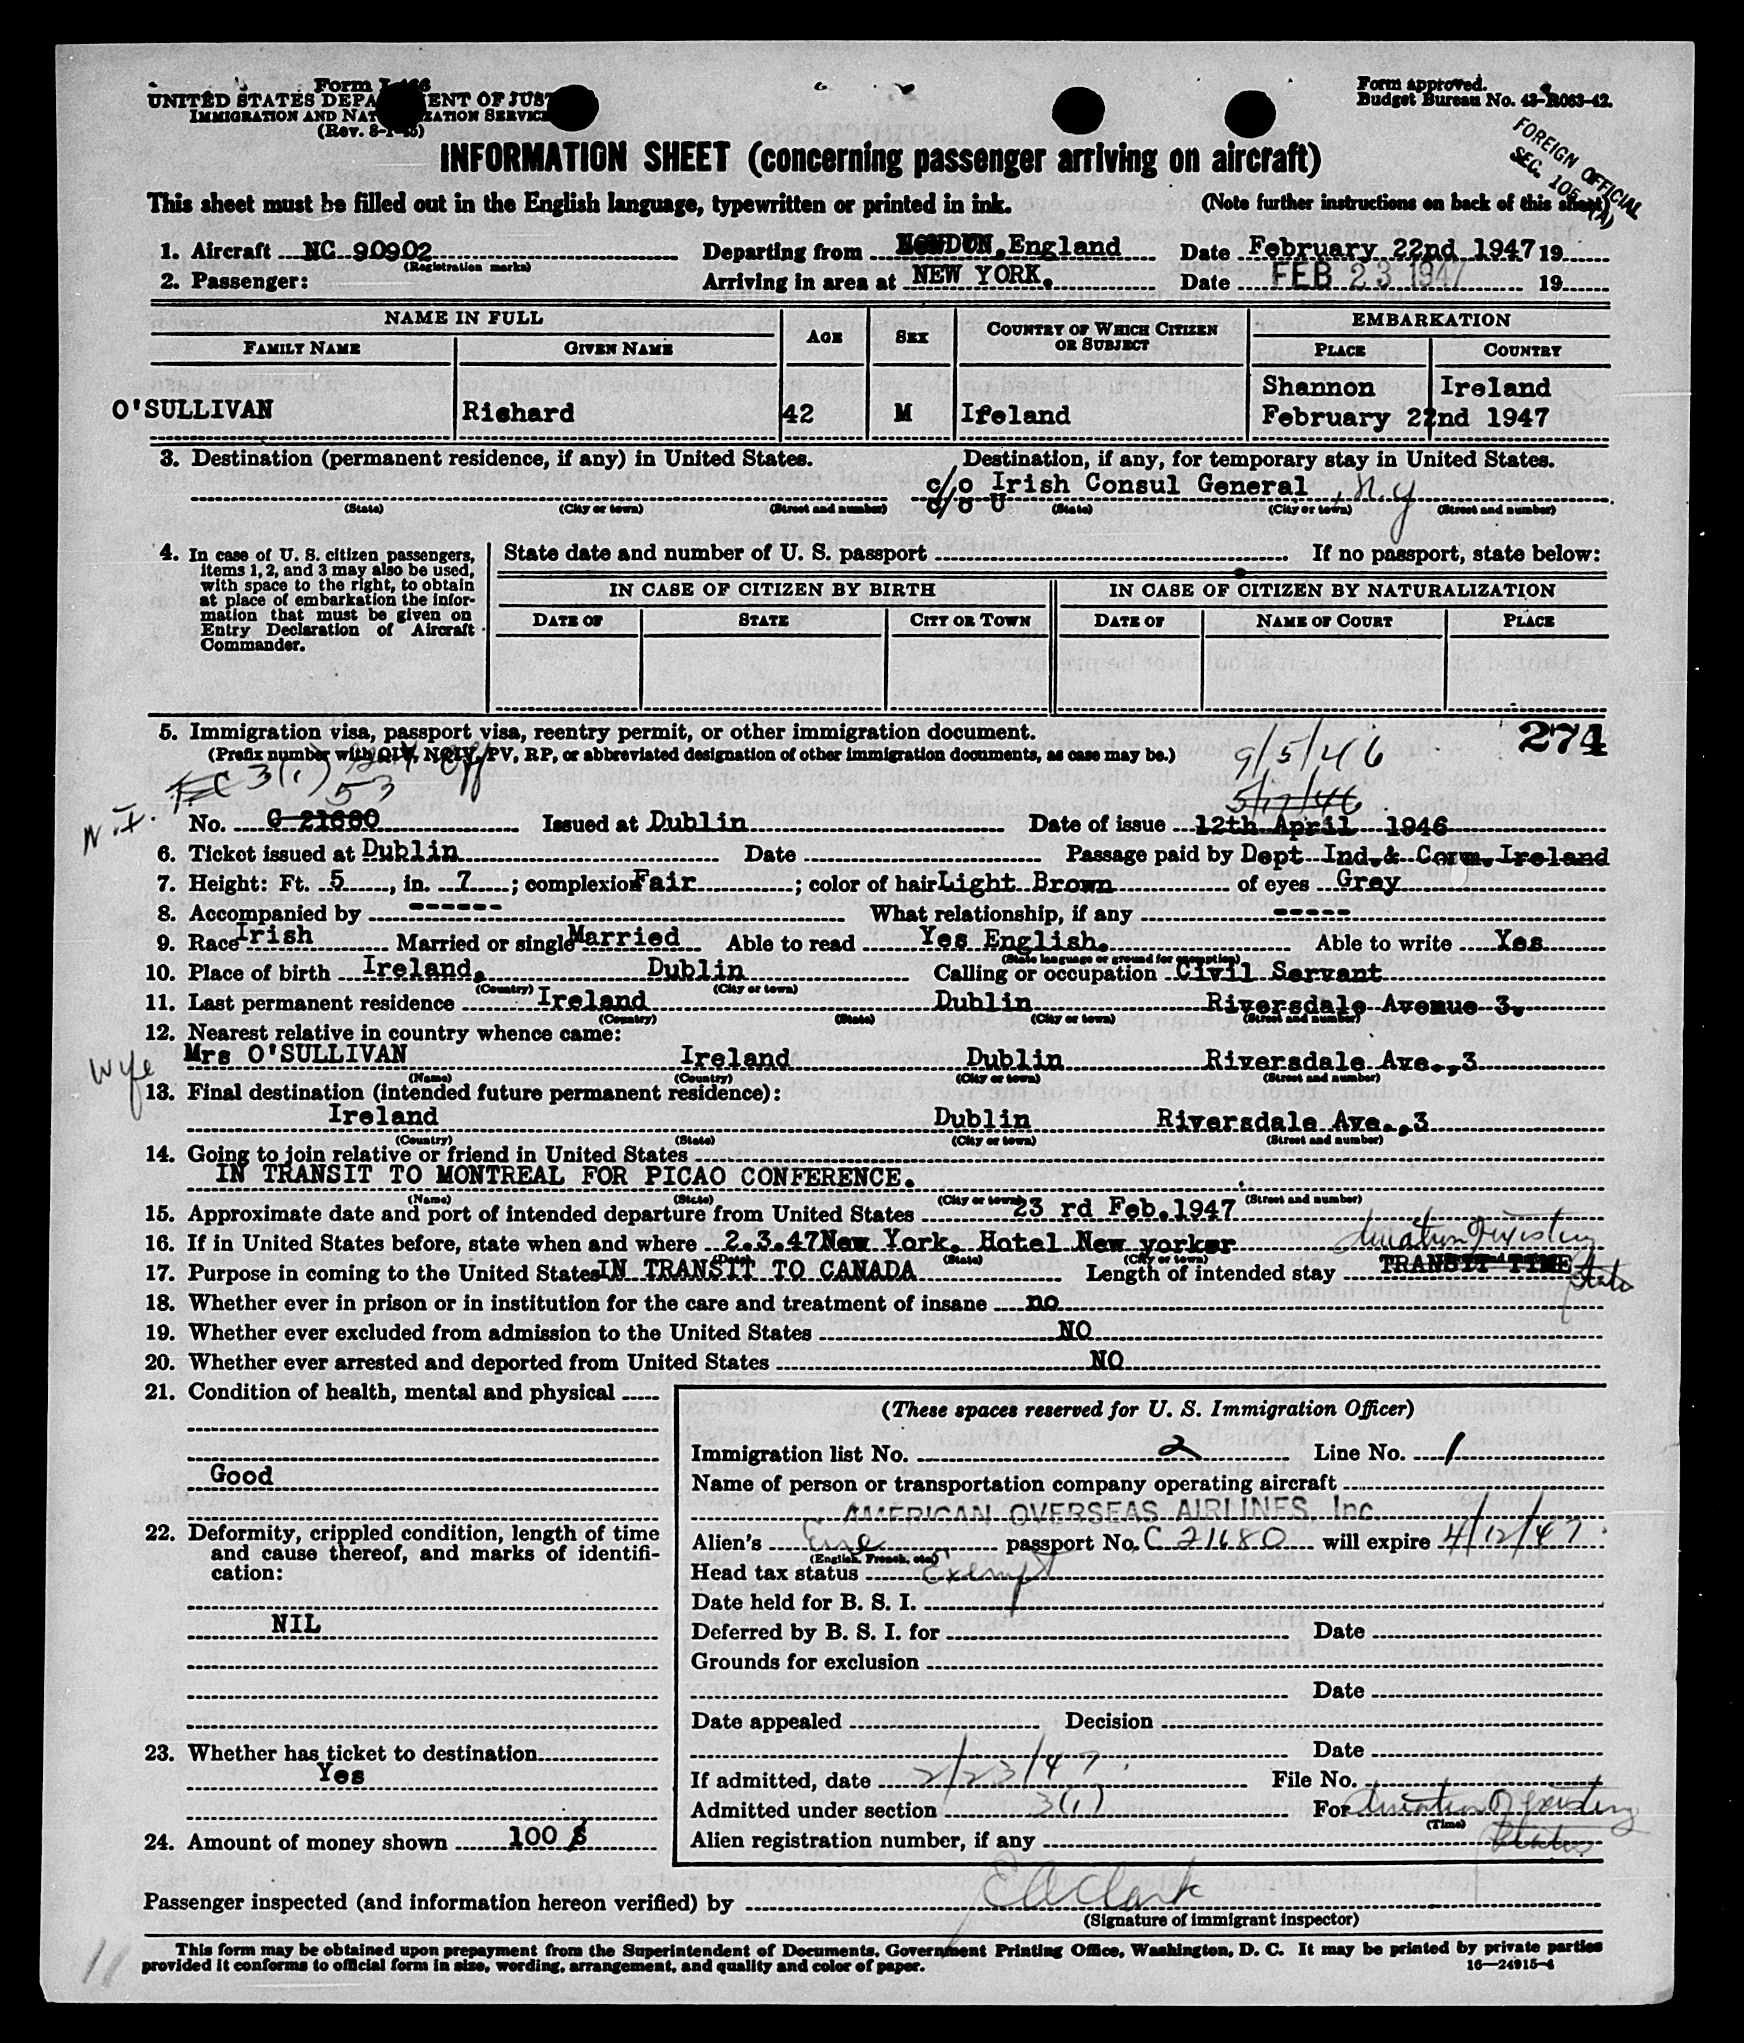 Form I-466
UNITED STATES DEPARTMENT OF JUSTICE
IMMIGRATION AND NATURALIZATION SERVICE
(Rev. 8-1-45)
Form approved.
Budget Bureau No. 43-R063-42.
FOREIGN OFFICIAL
SEC. 105 (A)
INFORMATION SHEET (concerning passenger arriving on aircraft)
This sheet must be filled out in the English language, typewritten or printed in ink. (Note further instructions on back of this sheet)
1. Aircraft NC 90902 Departing from LONDON, England Date February 22nd 1947 19
(Registration marks)
2. Passenger: Arriving in area at NEW YORK. Date FEB 23 1947 19
NAME IN FULL AGE SEX COUNTRY OF WHICH CITIZEN OR SUBJECT EMBARKATION
FAMILY NAME GIVEN NAME PLACE COUNTRY
Shannon Ireland
O'SULLIVAN Richard 42 M Ireland February 22nd 1947
3. Destination (permanent residence, if any) in United States. Destination, if any, for temporary stay in United States.
c/o Irish Consul General, N.Y
(State) (City or town) (Street and number) c/o U (State) (City or town) (Street and number)
4. In case of U. S. citizen passengers, items 1, 2, and 3 may also be used, with space to the right, to obtain at place of embarkation the information that must be given on Entry Declaration of Aircraft Commander.
State date and number of U. S. passport If no passport, state below:
IN CASE OF CITIZEN BY BIRTH IN CASE OF CITIZEN BY NATURALIZATION
DATE OF STATE CITY OR TOWN DATE OF NAME OF COURT PLACE
5. Immigration visa, passport visa, reentry permit, or other immigration document. 274
(Prefix number with QIV, NQIV, PV, RP, or abbreviated designation of other immigration documents, as case may be.) 9/5/46
N.I. 3(1) Off 53 5/17/46
No. C 21680 Issued at Dublin Date of issue 12th April 1946
6. Ticket issued at Dublin Date Passage paid by Dept Ind.& Com. Ireland
7. Height: Ft. 5, in. 7; complexion Fair; color of hair Light Brown of eyes Grey
8. Accompanied by ------ What relationship, if any -----
9. Race Irish Married or single Married Able to read Yes English. Able to write Yes
(State language or ground for exemption)
10. Place of birth Ireland. Dublin Calling or occupation Civil Servant
(Country) (City or town)
11. Last permanent residence Ireland Dublin Riversdale Avenue 3.
(Country) (State) (City or town) (Street and number)
12. Nearest relative in country whence came:
wife Mrs O'SULLIVAN Ireland Dublin Riversdale Ave.,3
(Name) (Country) (City or town) (Street and number)
13. Final destination (intended future permanent residence):
Ireland Dublin Riversdale Ave.,3
(Country) (State) (City or town) (Street and number)
14. Going to join relative or friend in United States
IN TRANSIT TO MONTREAL FOR PICAO CONFERENCE.
(Name) (State) (City or town) (Street and number)
15. Approximate date and port of intended departure from United States 23 rd Feb.1947
16. If in United States before, state when and where 2.3.47 New York. Hotel New yorker
(Date) (State) (City or town) (Street and number)
duration of existing status
17. Purpose in coming to the United States IN TRANSIT TO CANADA Length of intended stay TRANSIT TIME
18. Whether ever in prison or in institution for the care and treatment of insane no
19. Whether ever excluded from admission to the United States NO
20. Whether ever arrested and deported from United States NO
21. Condition of health, mental and physical
Good
22. Deformity, crippled condition, length of time
and cause thereof, and marks of identifi-
cation:
NIL
23. Whether has ticket to destination
Yes
24. Amount of money shown 100 $
(These spaces reserved for U. S. Immigration Officer)
Immigration list No. 2 Line No. 1
Name of person or transportation company operating aircraft
AMERICAN OVERSEAS AIRLINES, Inc.
Alien's Eire passport No. C 21680 will expire 4/12/47
(English, French, etc.)
Head tax status Exempt
Date held for B. S. I.
Deferred by B. S. I. for Date
Grounds for exclusion
Date
Date appealed Decision
Date
If admitted, date 2/23/47. File No.
Admitted under section 3(1) For duration of existing status
(Time)
Alien registration number, if any
Passenger inspected (and information hereon verified) by E A Clark
(Signature of immigrant inspector)
This form may be obtained upon prepayment from the Superintendent of Documents, Government Printing Office, Washington, D. C. It may be printed by private parties
provided it conforms to official form in size, wording, arrangement, and quality and color of paper. 16—24915-4
11